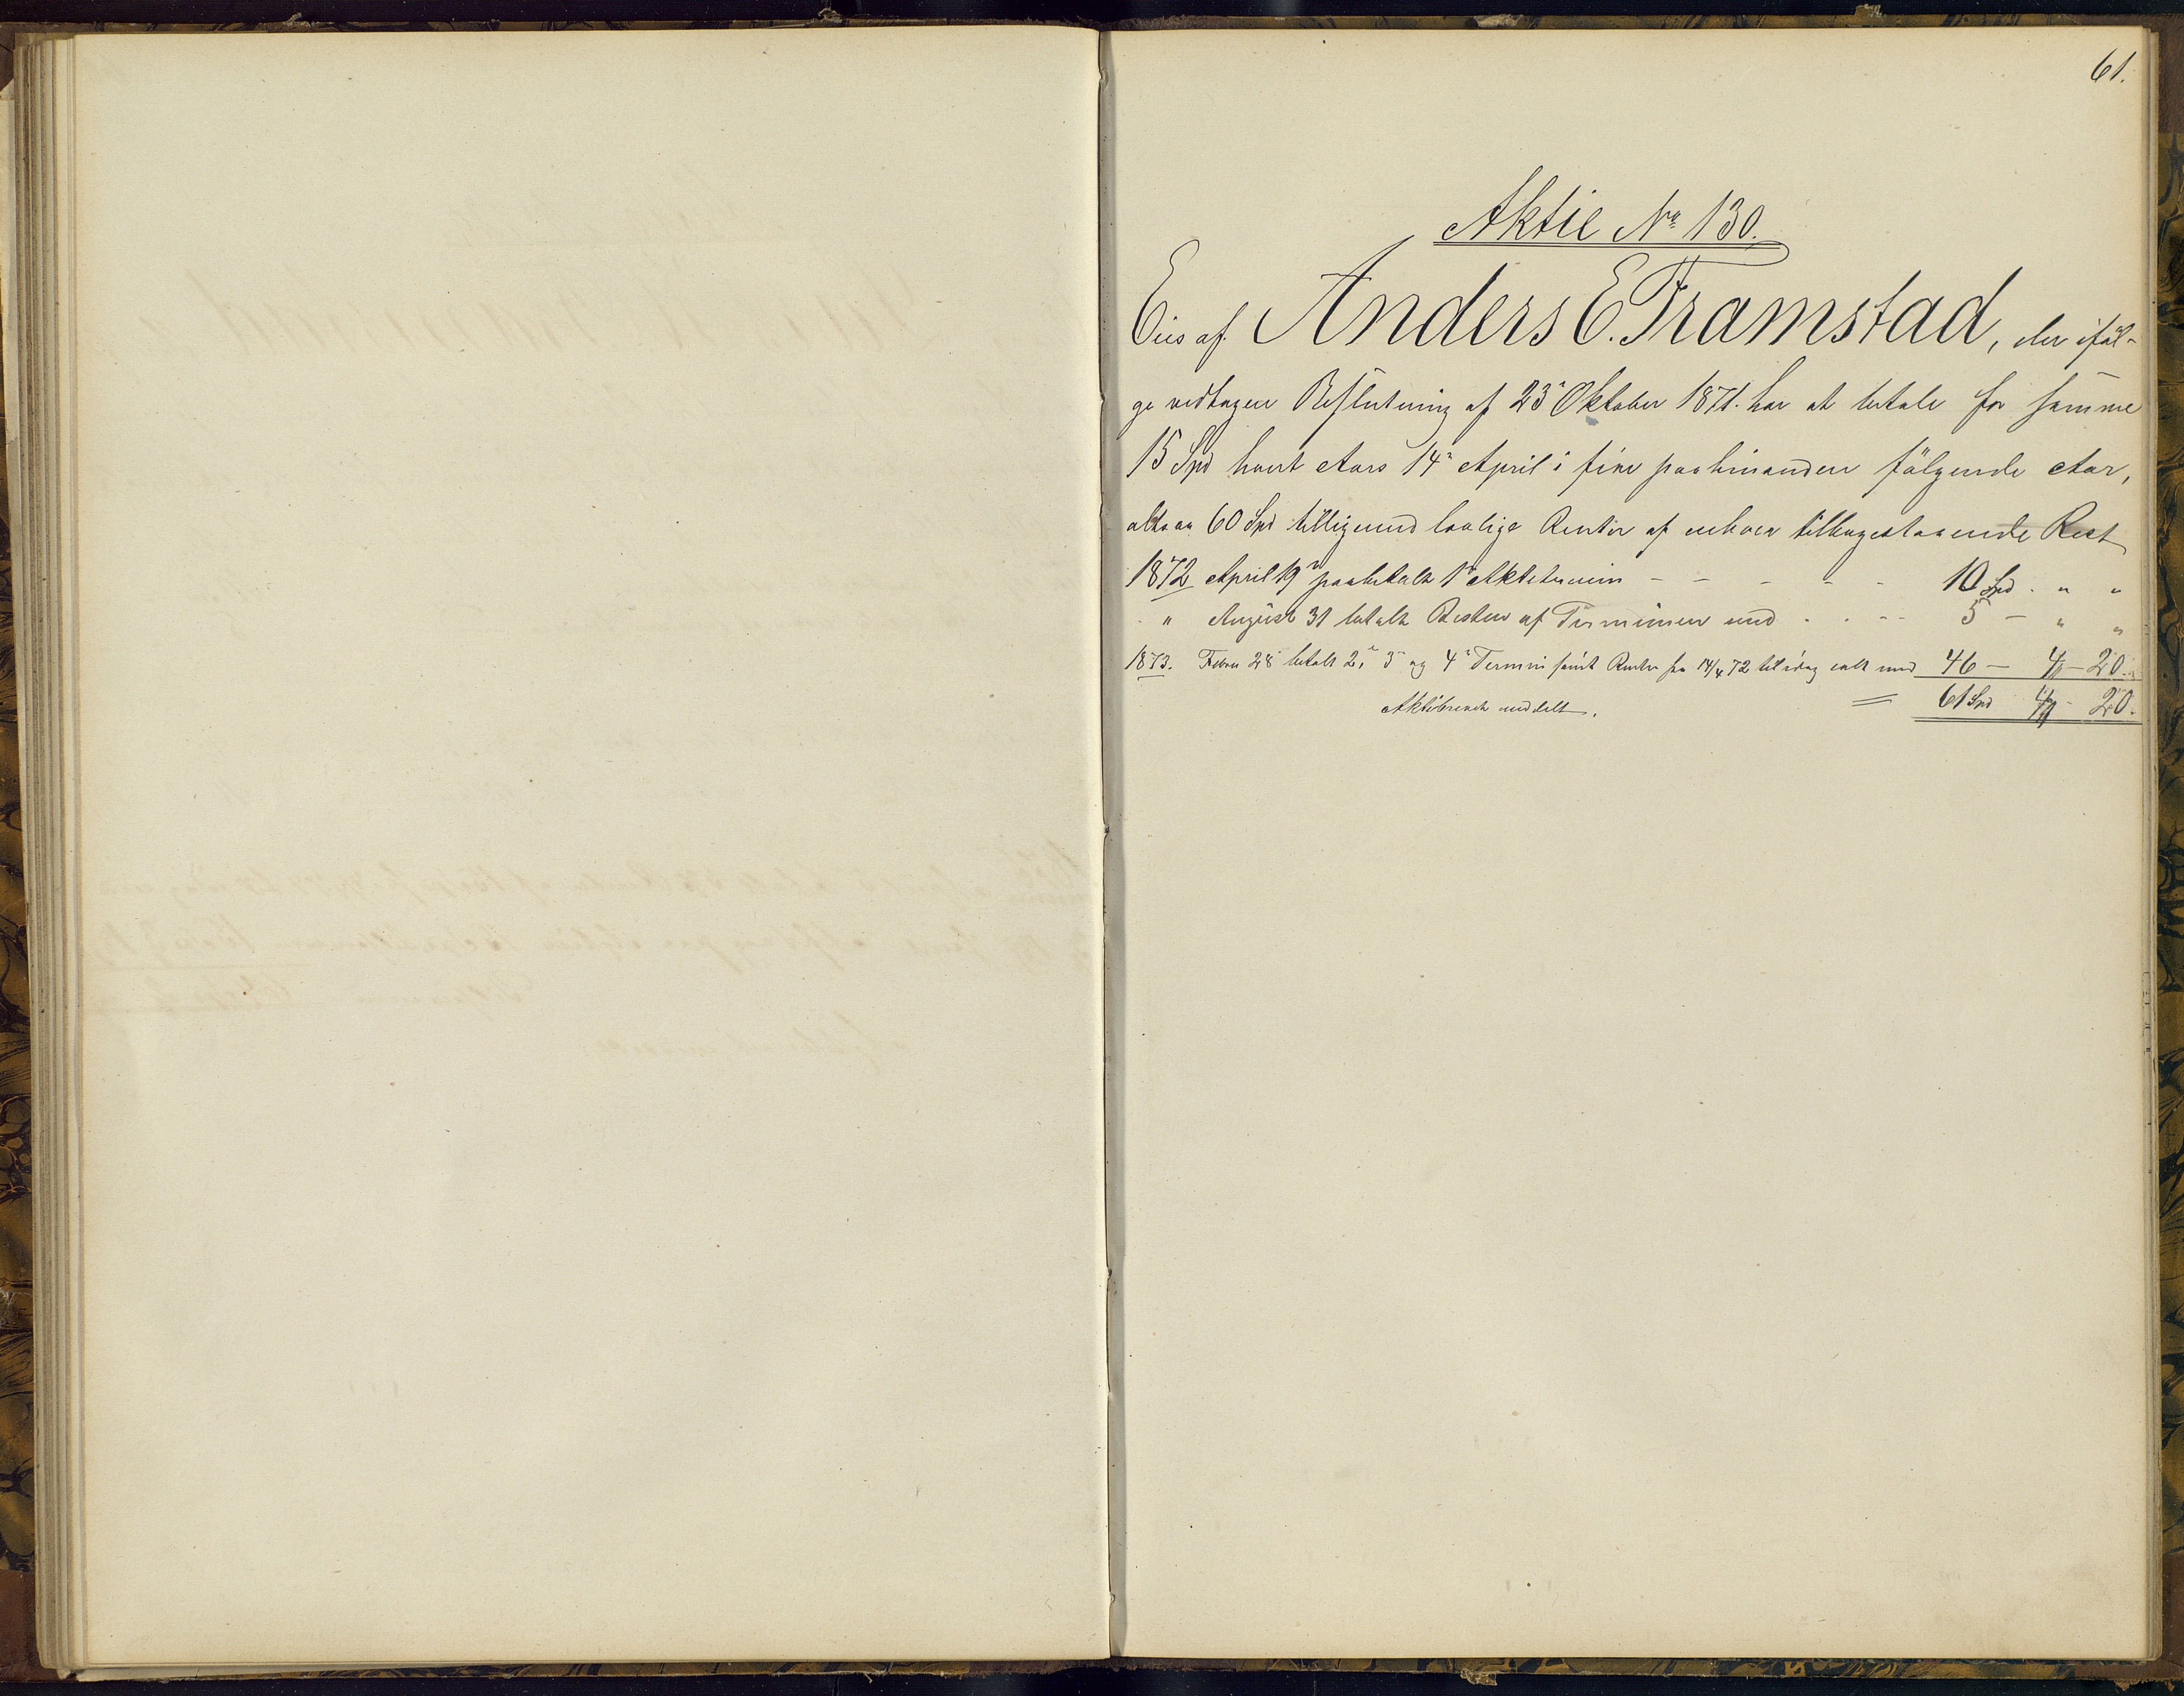 61.
Aktie No 130.
Eies af Anders E. Framstad, der iføl-
ge vedtagen Beslutning af 23de Oktober 1871. har at betale for samme
15 Spd hvert Aars 14de April i fire paahinanden følgende Aar,
altsaa 60 Spd tilligemed lovlige Renter af enhver tilbagestaaende Rest
1872 April 19de paabetalt 1ste Aktietermin - - - - - 10 Spd. " "
" August 31 betalt Resten af Terminen med . . - - 5 - " "
1873. Febru 28 betalt 2de, 3de og 4de Termin samt Renter fra 14/4 72 til idag ialt med 46 - 4 - 20.
Aktiebrevet meddelt. = 61 Spd 4 - 20.